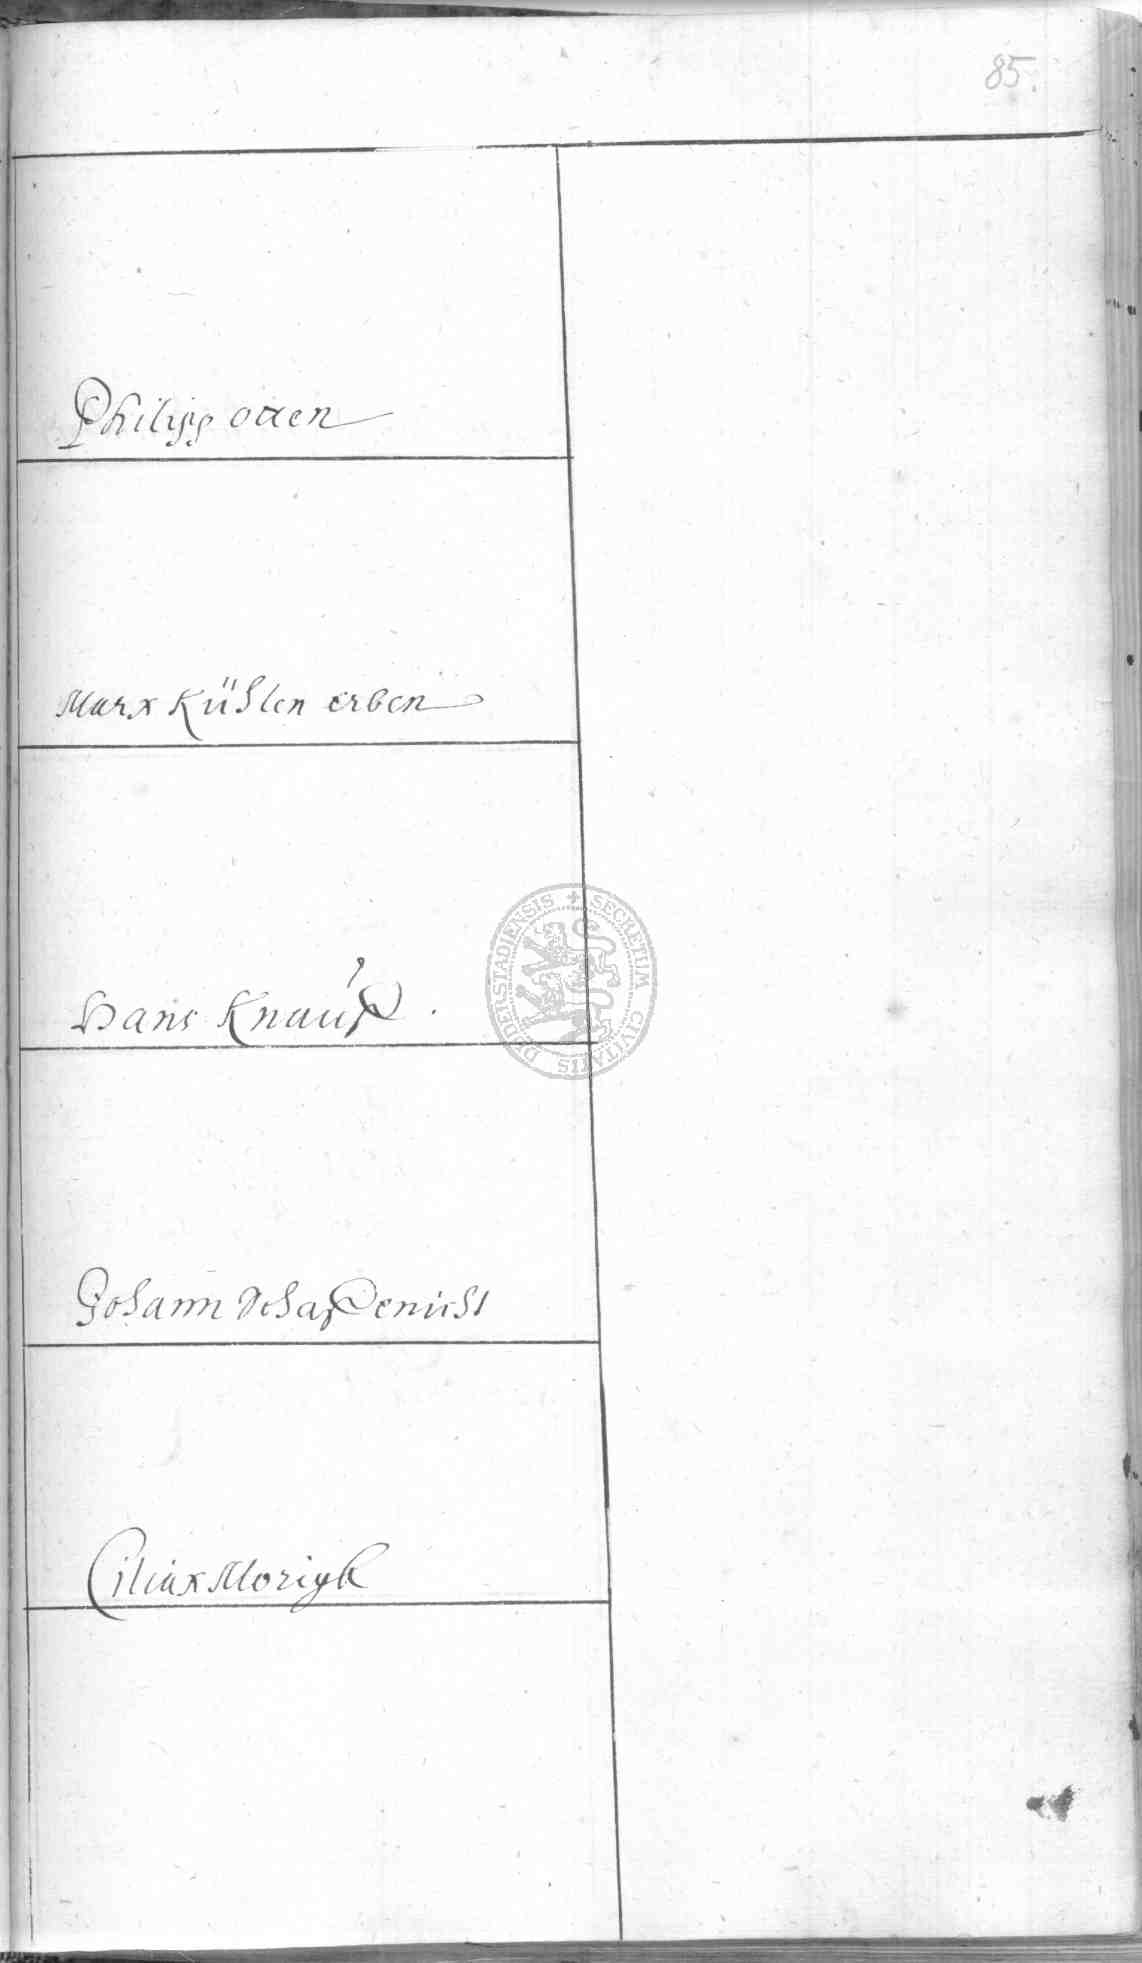 85.
Philipp otten
Marx Kühlen erben
Hans Knauff
Johann Schaffenicht
Ciliax
SECRETUM CIVITATIS DUDERSTADIENSIS